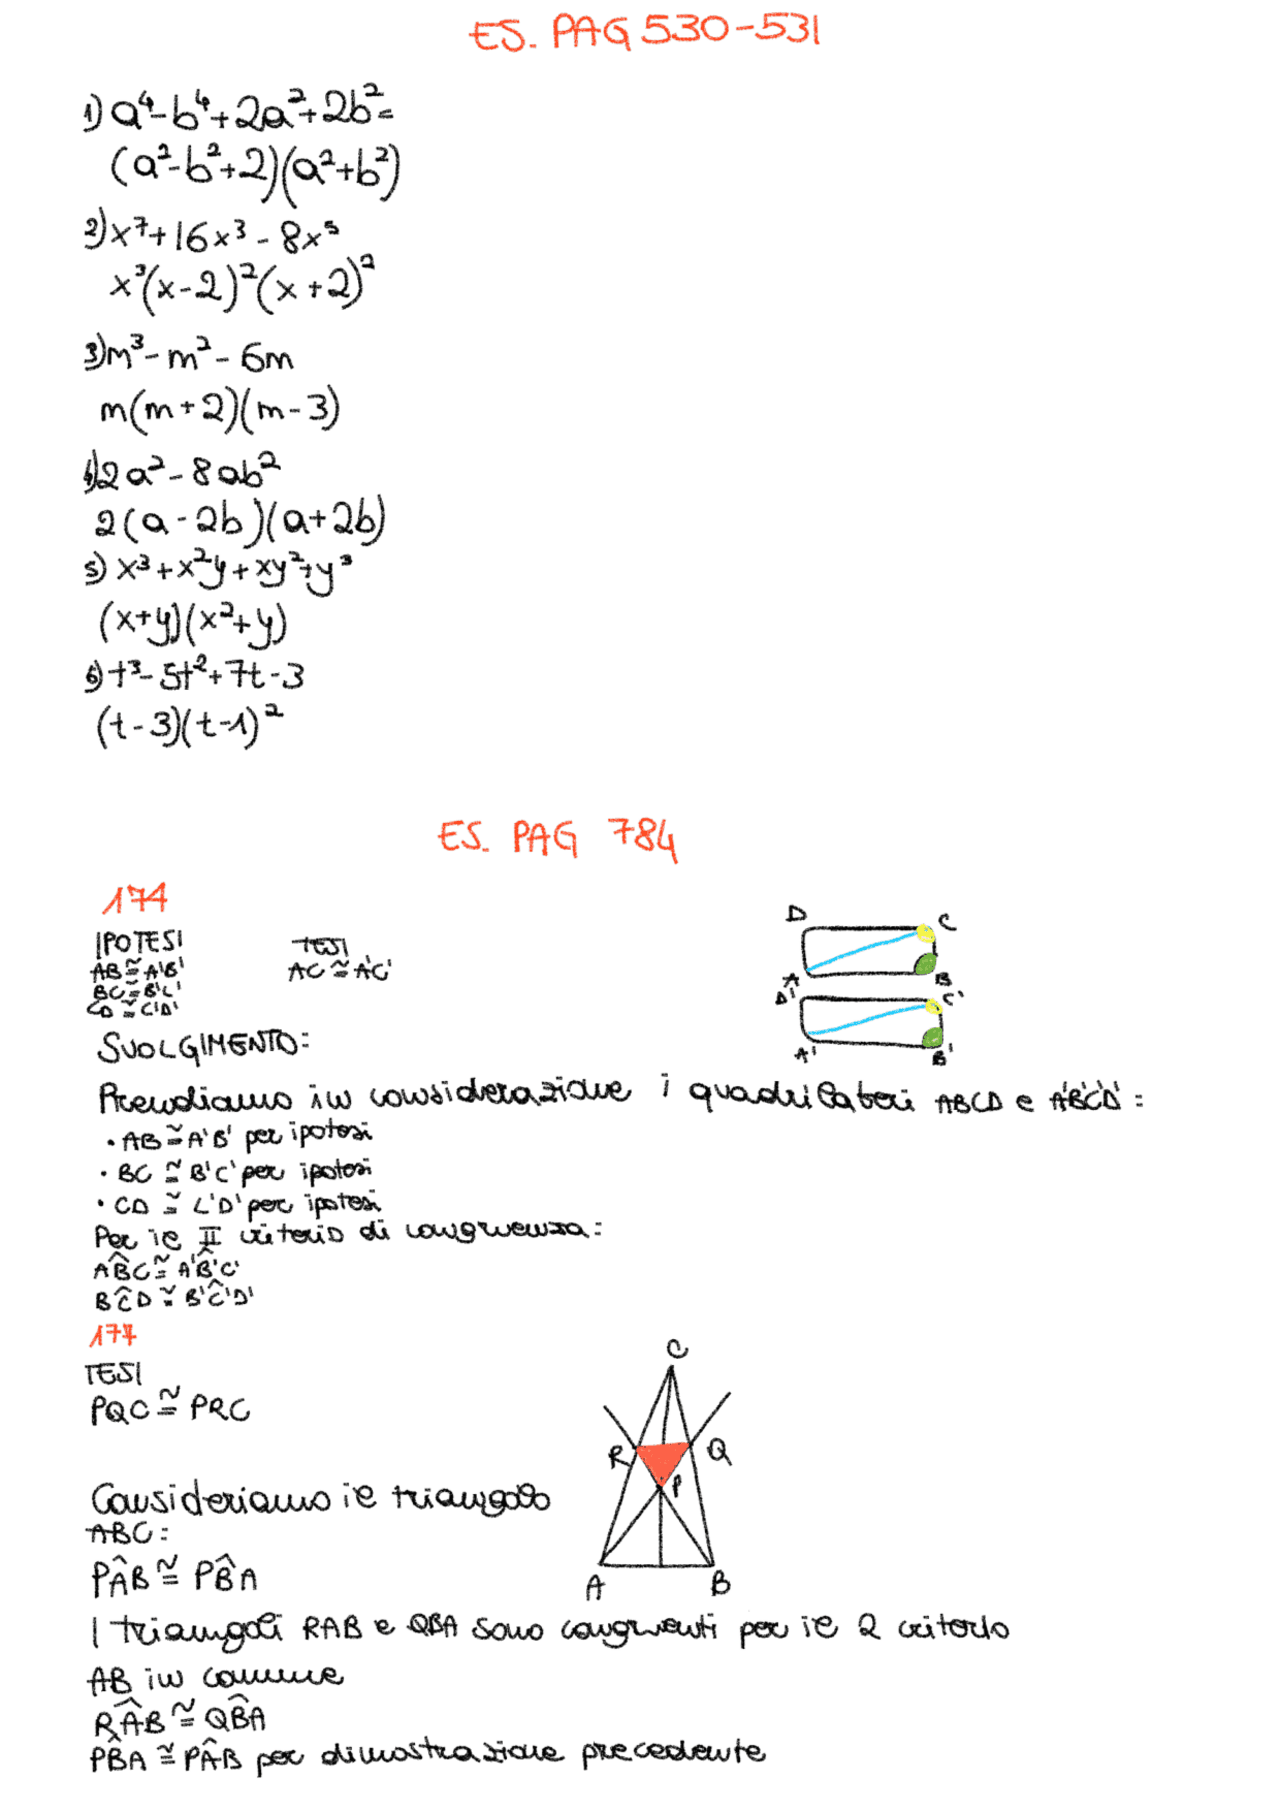 ES. PAG 530-531
1) a⁴-b⁴+2a²+2b²=
(a²-b²+2)(a²+b²)
2) x⁷+16x³-8x⁵
x³(x-2)²(x+2)²
3) m³-m²-6m
m(m+2)(m-3)
4) 2a²-8ab²
2(a-2b)(a+2b)
5) x³+x²y+xy²+y³
(x+y)(x²+y)
6) t³-5t²+7t-3
(t-3)(t-1)²
ES. PAG 784
174
IPOTESI TESI
AB≅A'B' AC≅A'C'
BC≅B'C'
CD≅C'D'
D C
A B
D' C'
A' B'
SVOLGIMENTO:
Prendiamo in considerazione i quadrilateri ABCD e A'B'C'D':
• AB≅A'B' per ipotesi
• BC≅B'C' per ipotesi
• CD≅C'D' per ipotesi
Per il II criterio di congruenza:
AB̂C≅A'B̂'C'
BĈD≅B'Ĉ'D'
177
TESI
PQC≅PRC
C
R Q
P
A B
Consideriamo il triangolo
ABC:
PÂB≅PB̂A
I triangoli RAB e QBA sono congruenti per il 2 criterio
AB in comune
RÂB≅QB̂A
PB̂A≅PÂB per dimostrazione precedente